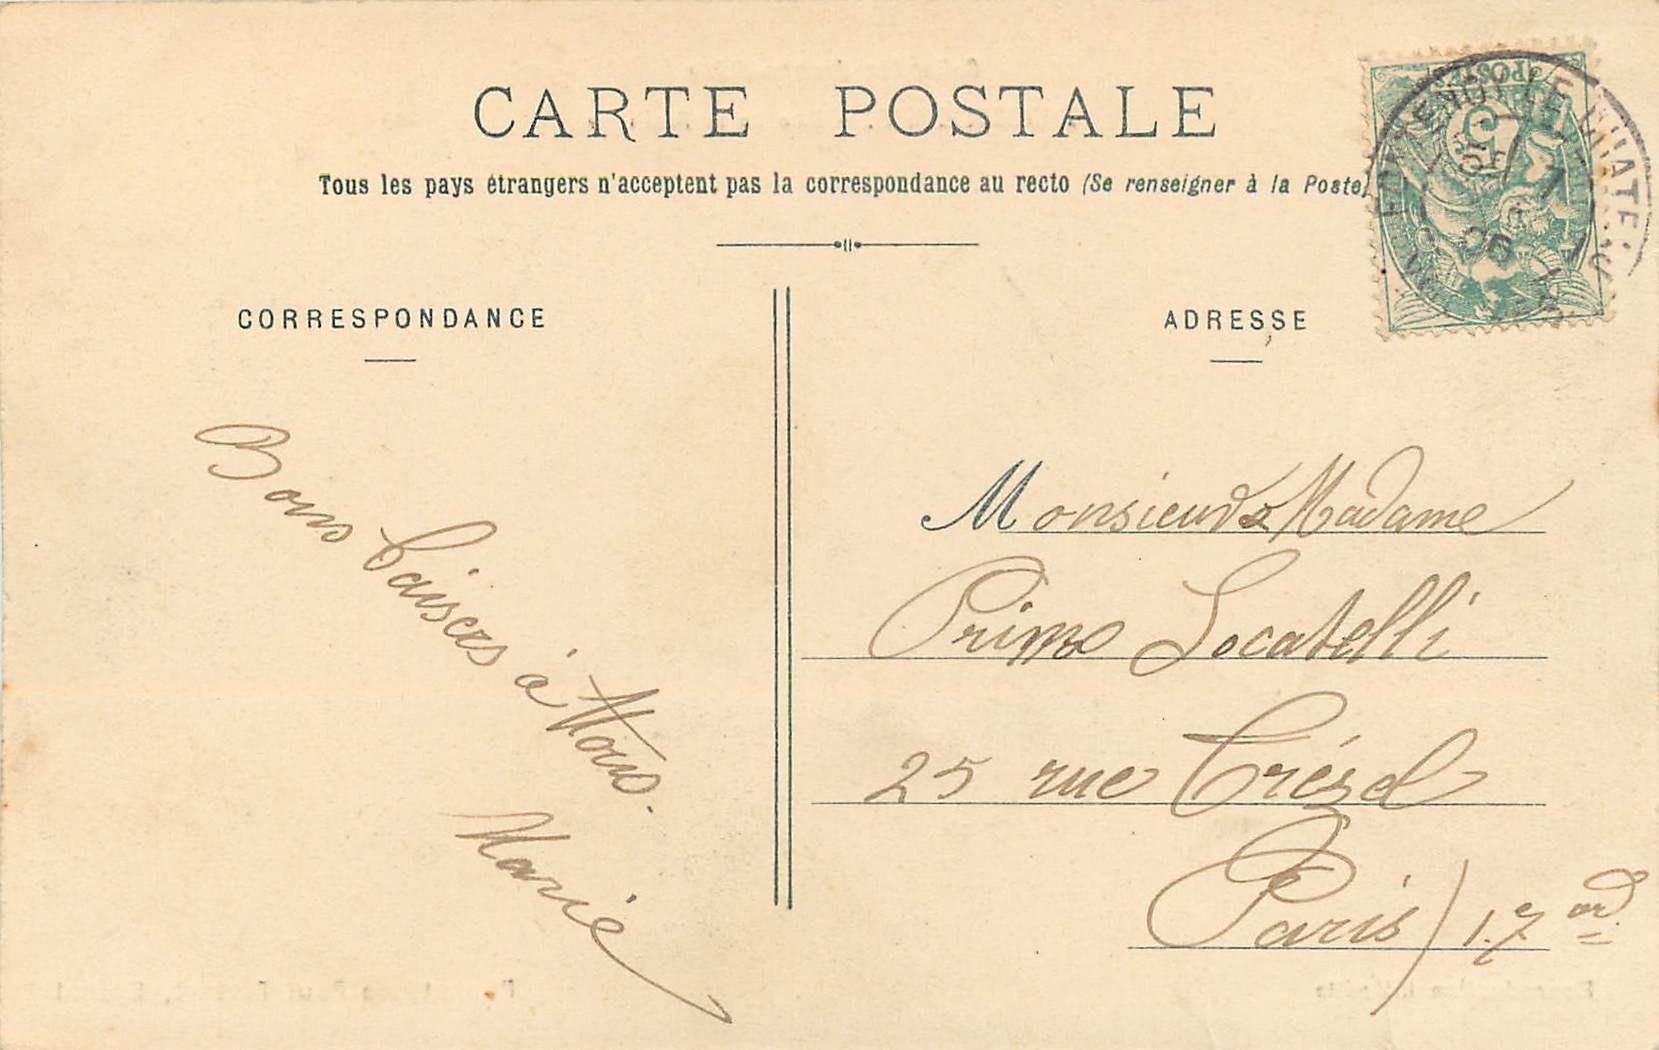 CARTE POSTALE
Tous les pays étrangers n'acceptent pas la correspondance au recto (Se renseigner à la Poste)
CORRESPONDANCE
Bons baisers à tous.
Marie
ADRESSE
Monsieur & Madame
Primo Locatelli
25 rue Trézel
Paris) 17e ard
POSTES
5